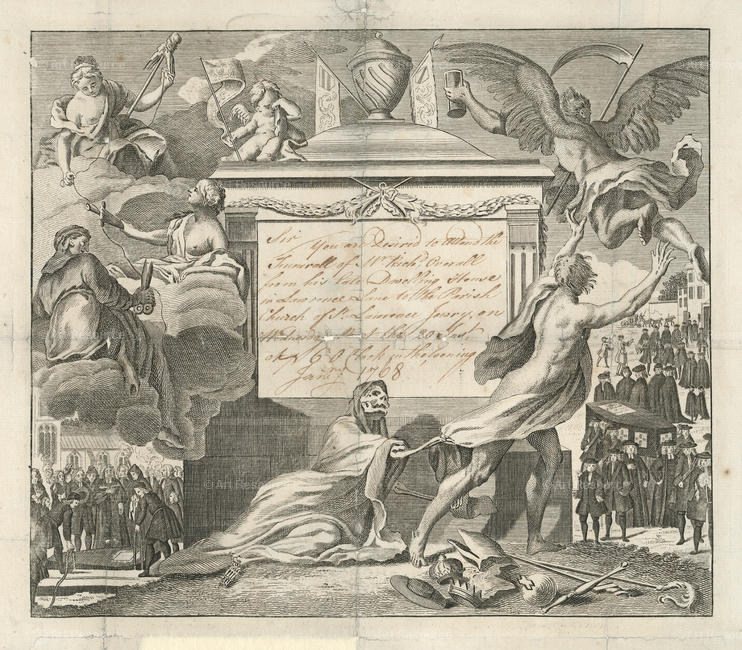 Sir
You are Desired to attend the
Funerall of Mr Richd
from his late Dwelling House
in Lawrence Lane to the Parish
Church of St Lawrence Jewry, on
Wednesday the 20 Inst
at 6 O Clock in the Evening
Jany 1768